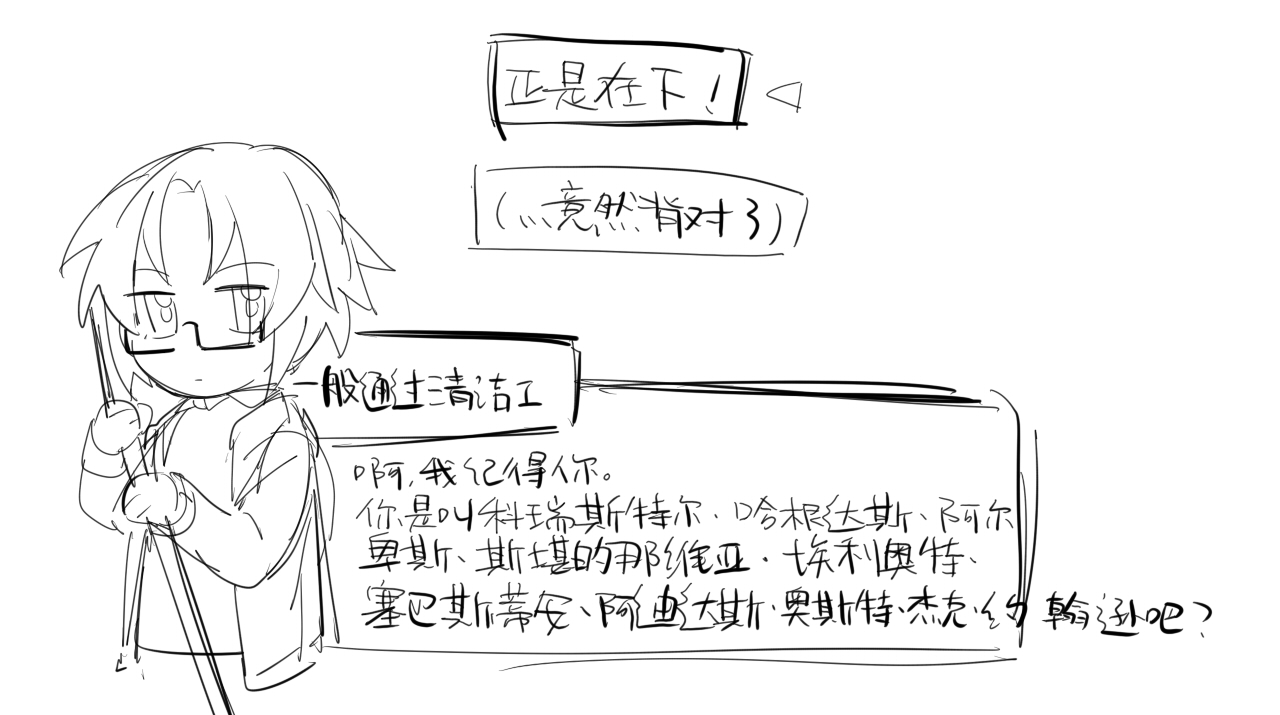 正是在下！
（…竟然背对了）
一般通过清洁工
啊，我记得你。
你是叫科瑞斯特尔·哈根达斯、阿尔
卑斯、斯堪的那维亚·埃利奥特、
塞巴斯蒂安、阿迪达斯·奥斯特·杰克·约翰逊吧？